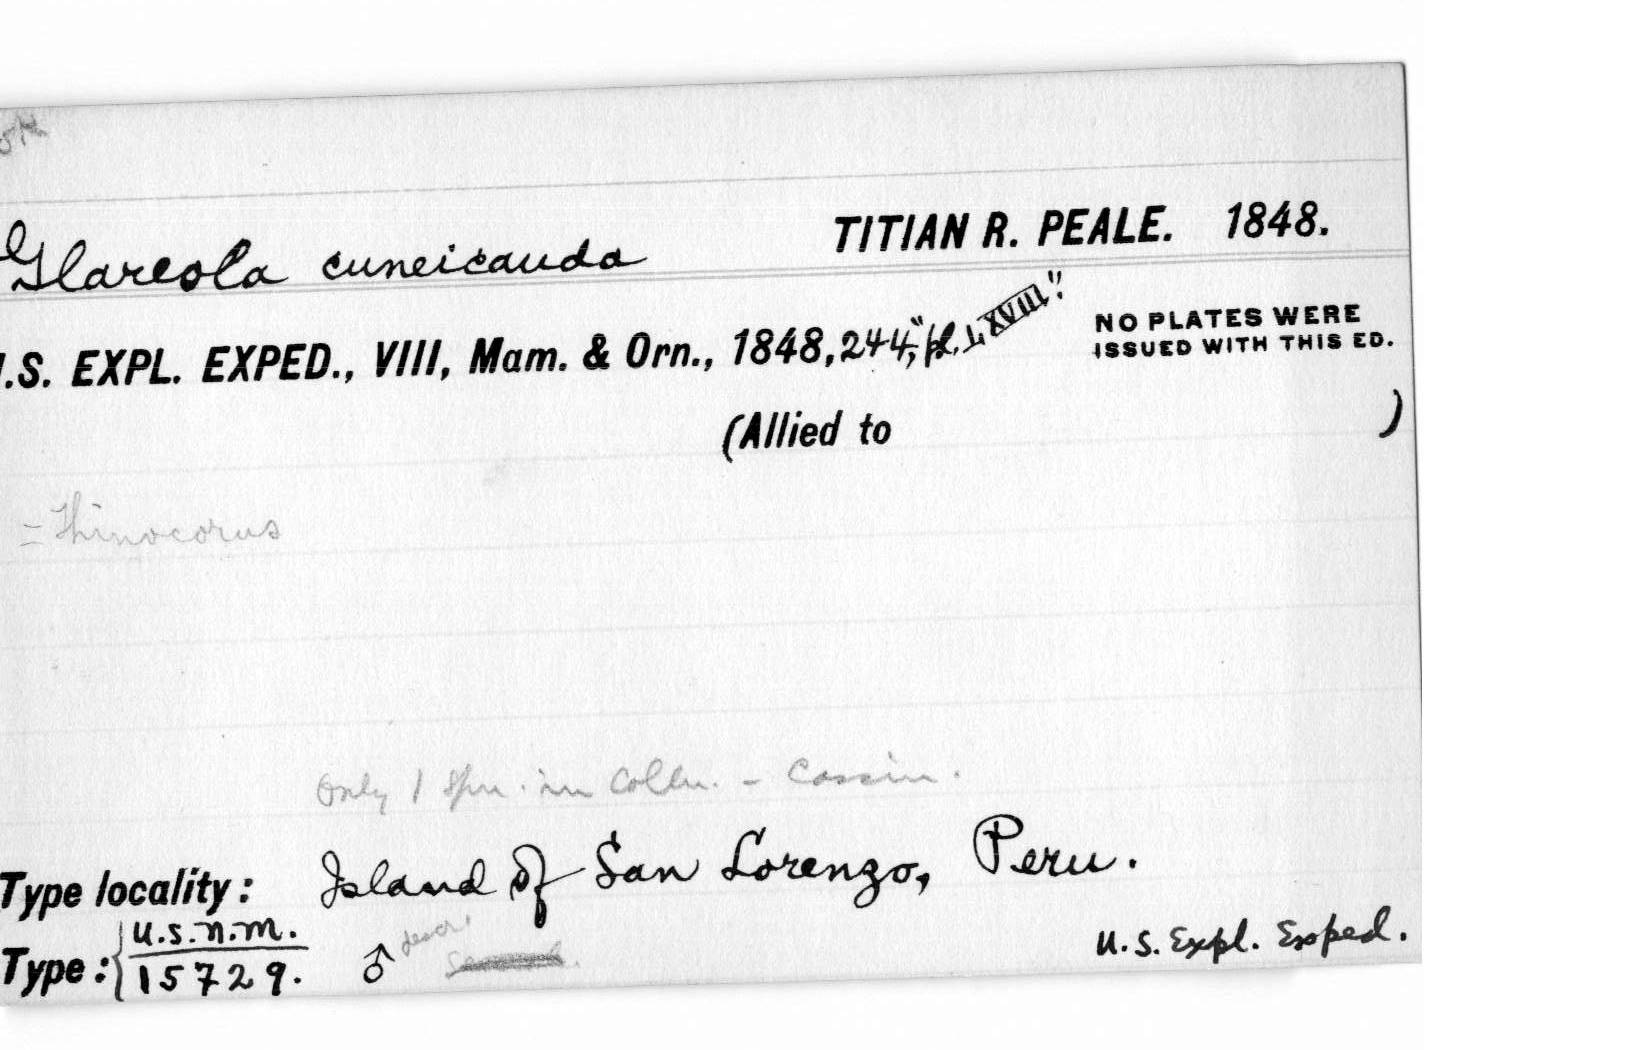 Glareola cuneicauda TITIAN R. PEALE. 1848.
.S. EXPL. EXPED., VIII, Mam. & Orn., 1848, 244, "pl. LXVIII". NO PLATES WERE
ISSUED WITH THIS ED.
(Allied to )
= Thinocorus
Only 1 spn. in Colln. - Cassin.
Type locality: Island of San Lorenzo, Peru.
Type: { U.S.N.M.
15729. ♂ descr. U.S. Expl. Exped.